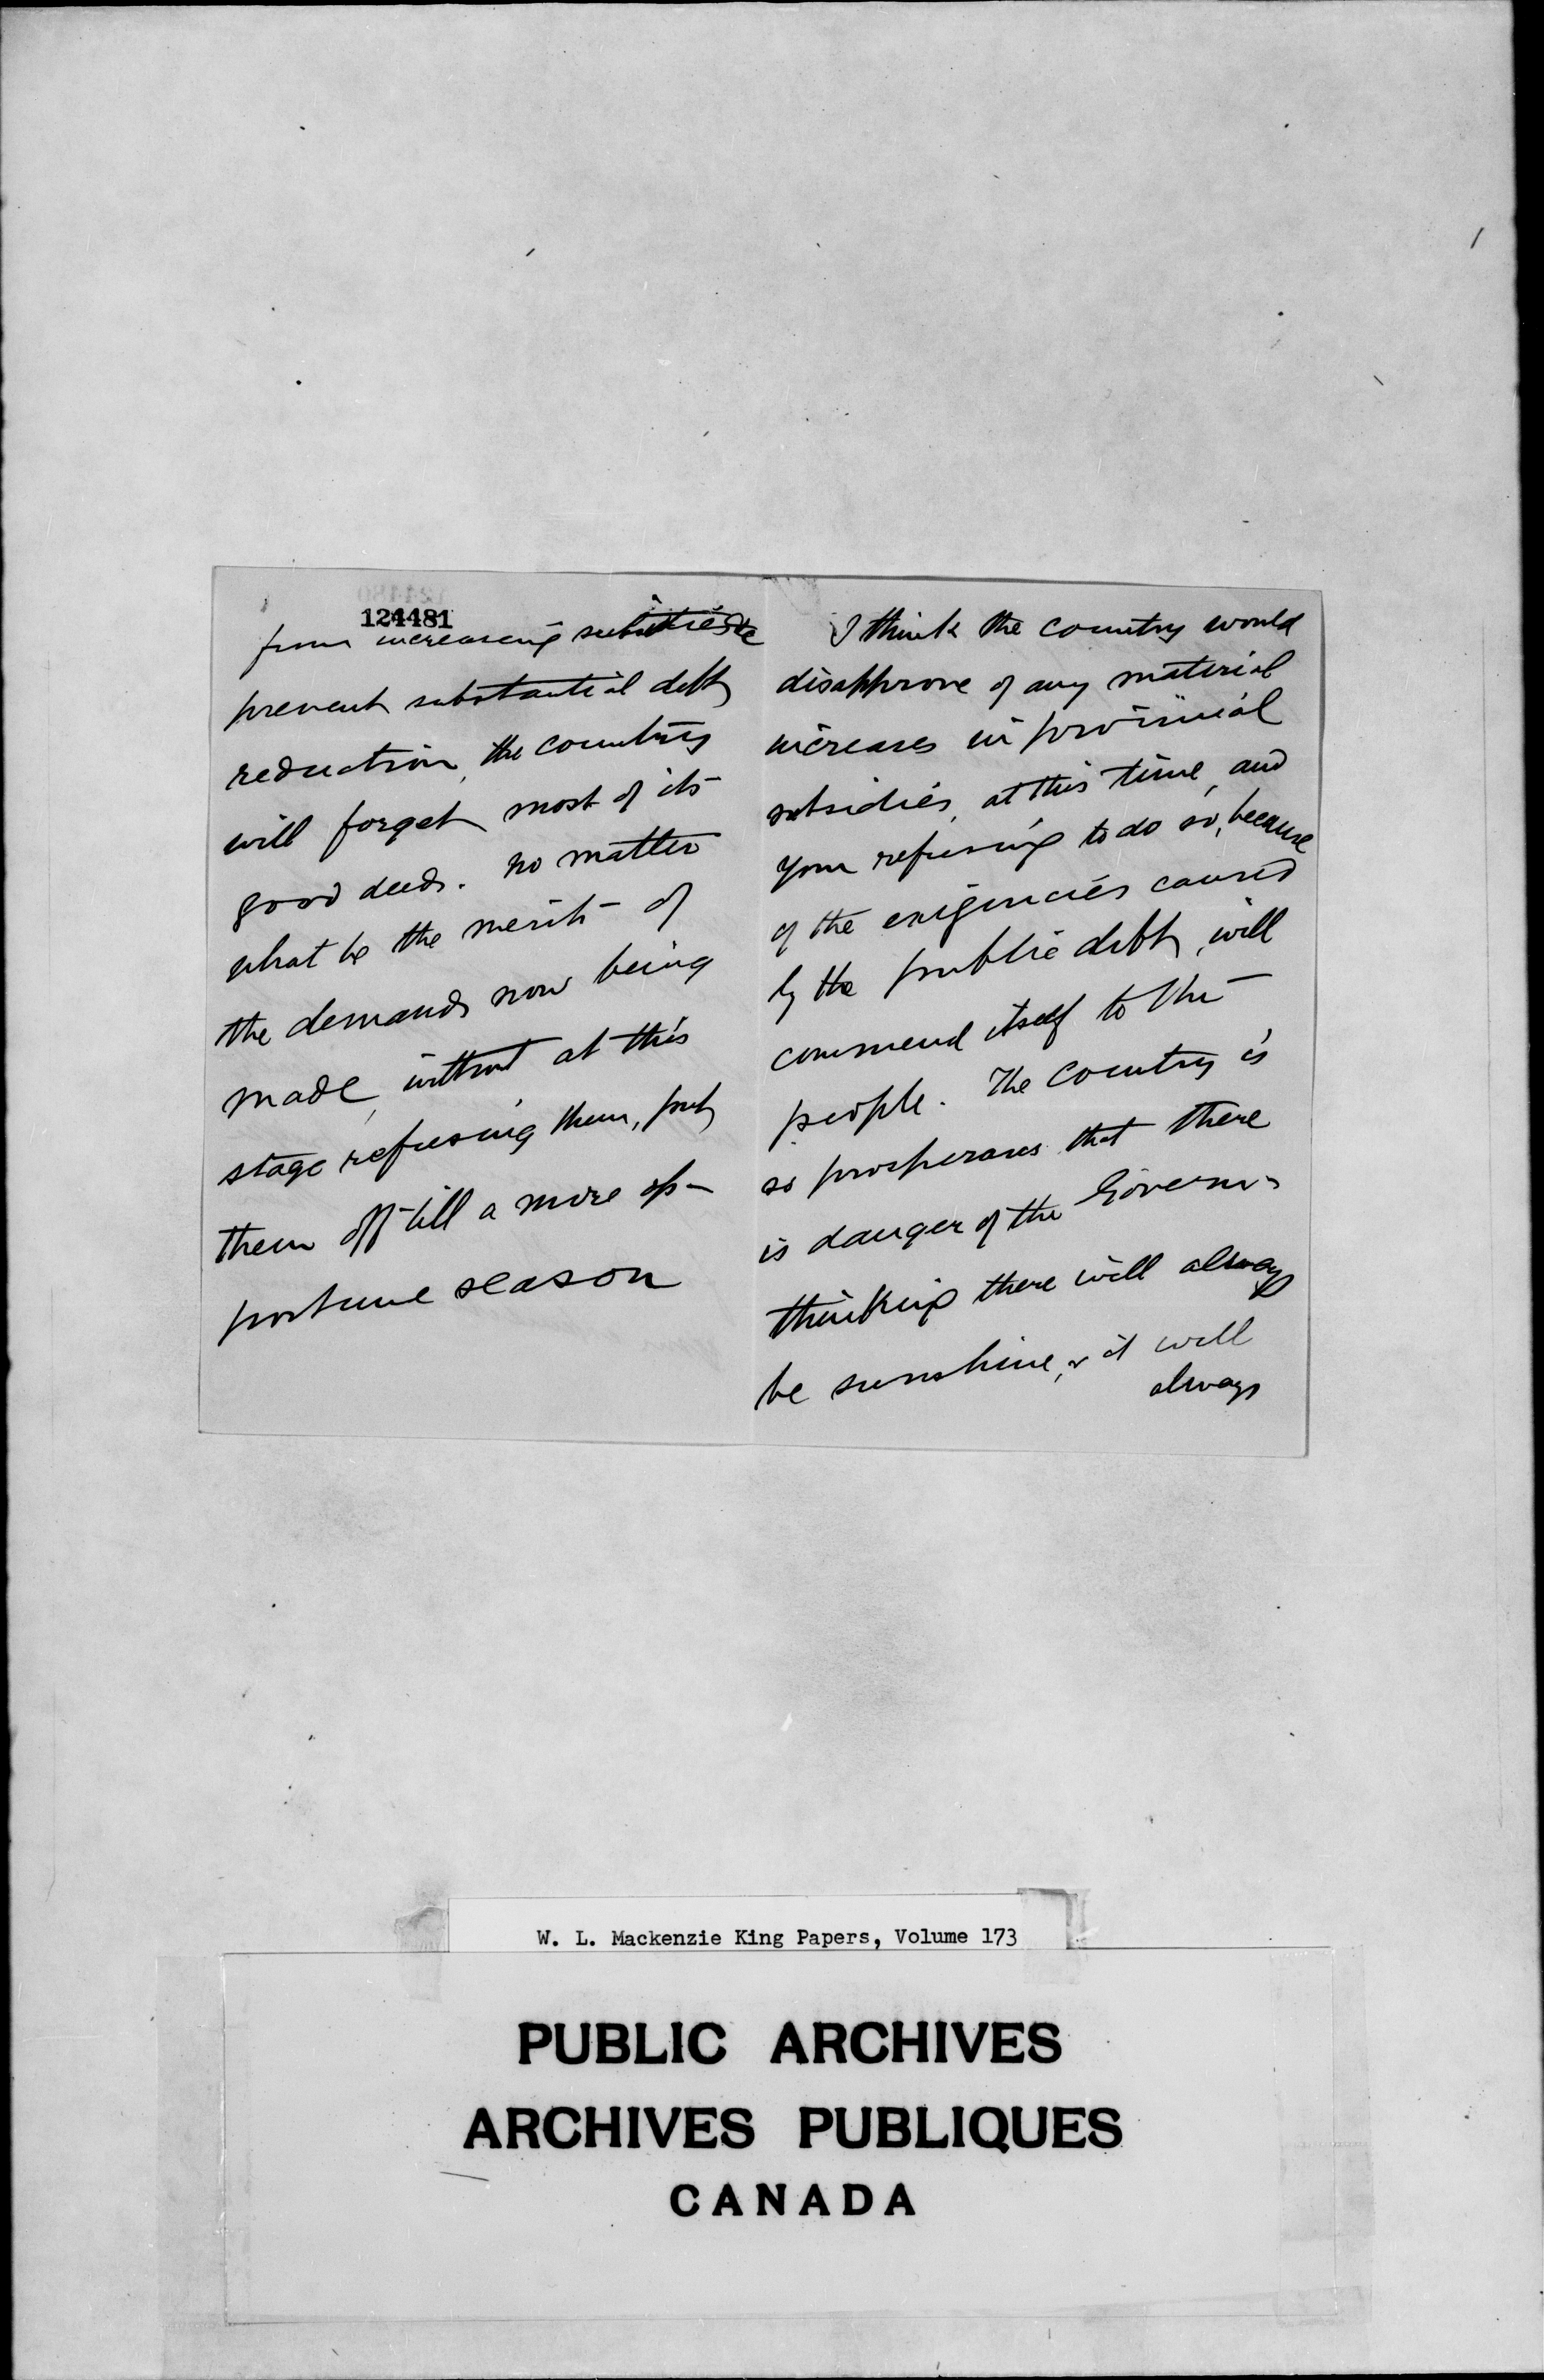 124481
from increasing subsidies &c
prevent substantial debt
reduction, the country
will forget most of its
good deeds. No matter
what be the merits of
the demands now being
made, without at this
stage refusing them, put
them off till a more op-
portune season
I think the country would
disapprove of any material
increases in provincial
subsidies, at this time, and
your refusing to do so, because
of the exigencies caused
by the public debt, will
commend itself to the
people. The country is
so prosperous that there
is danger of the Governm-
thinking there will always
be sunshine, & it will
always
W. L. Mackenzie King Papers, Volume 173
PUBLIC ARCHIVES
ARCHIVES PUBLIQUES
CANADA